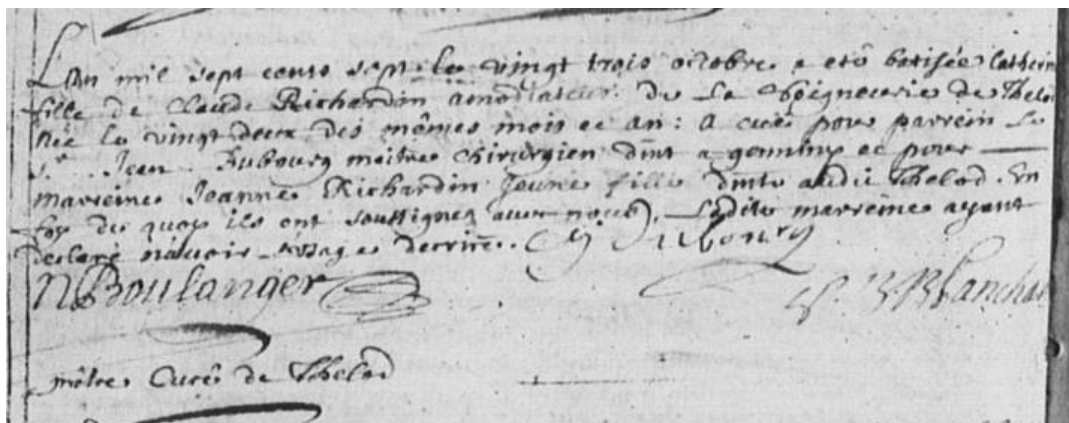 Lan mil sept cents sept le vingt trois octobre a eté batisée Catherin
fille de Claude Richardin amodiateur de La Seigneurie de Thelod
née le vingt deux des mêmes mois et an : a eué pour parrein Le
Sr. Jean Dubourg meitre chirurgien dmt a et pour
marreine Jeanne Richardin Jeune fille dmte audit Thelod. En
foy de quoy ils ont soussignez avec nous, Ladite marreine ayant
declaré n'avoir usage decrire. Dubourg
N Boulanger Blanchar
mêtre Curé de Thelod